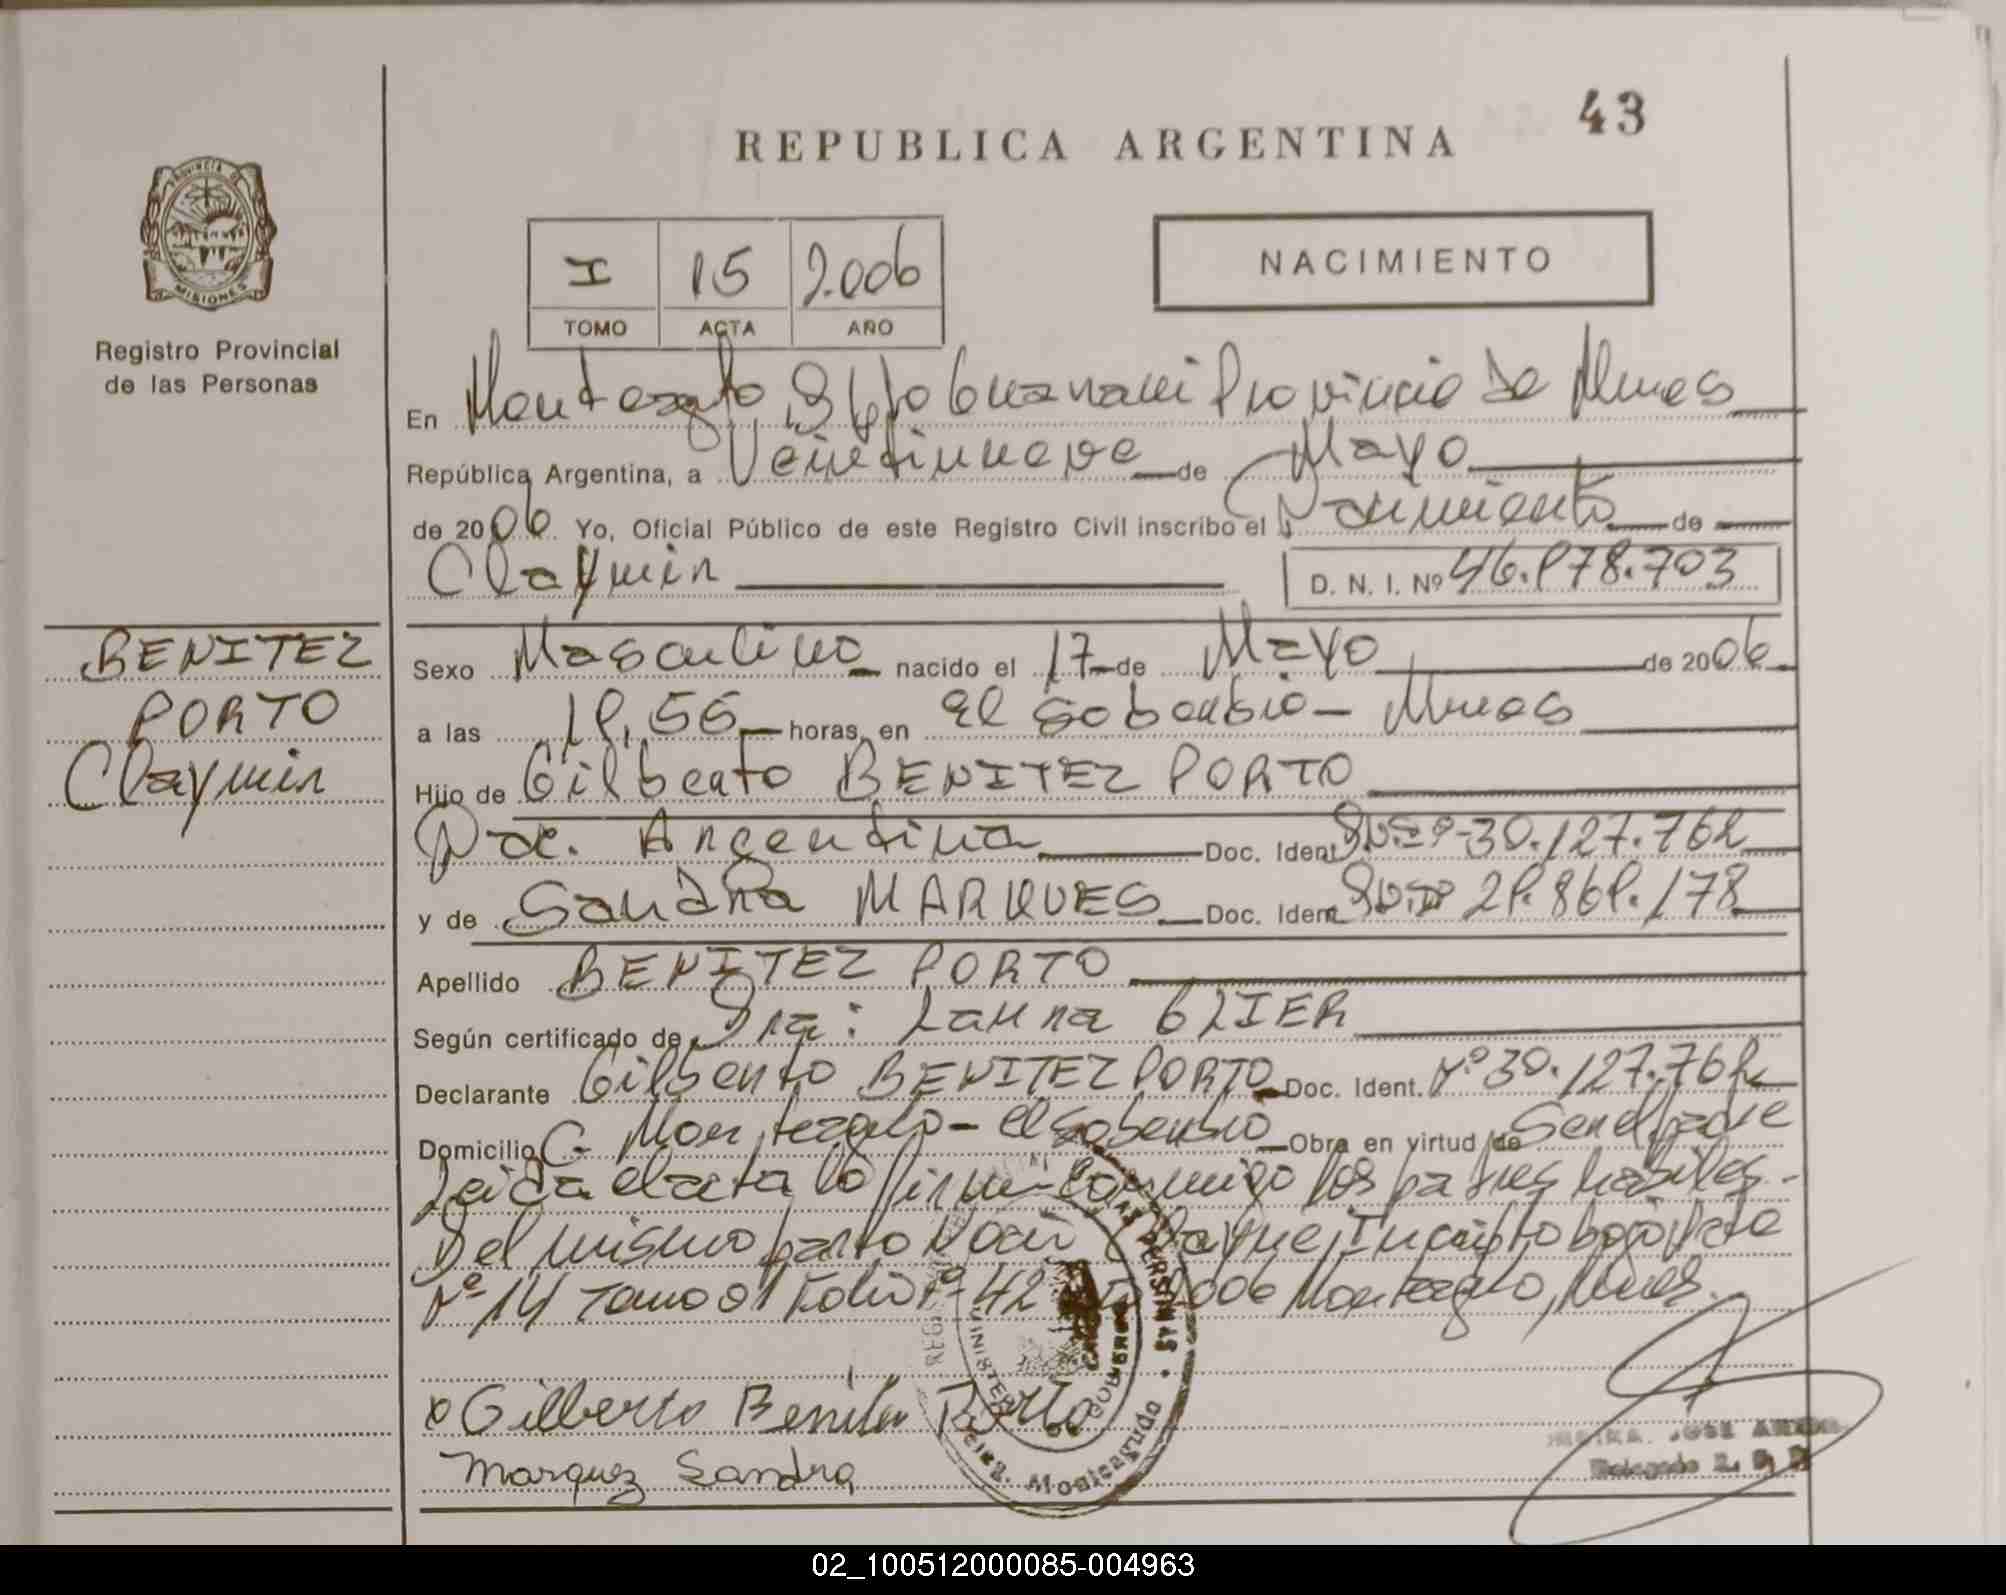 43
REPUBLICA ARGENTINA
PROVINCIA DE
MISIONES
Registro Provincial
de las Personas
I 15 2.006
TOMO ACTA AÑO
NACIMIENTO
En Monteagudo Dpto Guarani Provincia de Mnes
República Argentina, a Veintinueve de Mayo
de 2006 Yo, Oficial Público de este Registro Civil inscribo el Nacimiento de
Claymir D. N. I. Nº 46.978.703
BENITEZ
PORTO
Claymir
Sexo Masculino nacido el 17 de Mayo de 2006
a las 19,56 horas, en El Soberbio - Mnes
Hijo de Gilberto BENITEZ PORTO
Nac. Argentina Doc. Ident. 30.127.762
y de Sandra MARQUES Doc. Ident. 29.869.178
Apellido BENITEZ PORTO
Según certificado de Dra: Laura GLIER
Declarante Gilberto BENITEZ PORTO Doc. Ident. Nº 30.127.762
Domicilio C. Monteagudo - El Soberbio Obra en virtud de Ser el padre
Leida el acta lo firman conmigo los padres habiles.-
Del mismo parto Inscripto bajo Acta
Nº 14 Tomo 01 Folio Nº 42 2006 Monteagudo, Mnes.
Gilberto Benitez Porto
Marquez Sandra
JOSE
Delegado R. P. P.
DE LAS PERSONAS
MINISTERIO DE GOBIERNO
Monteagudo
02_100512000085-004963